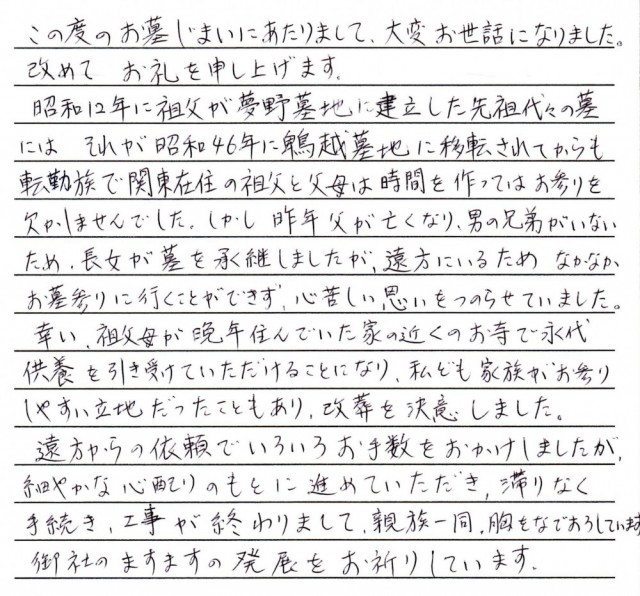 この度のお墓じまいにあたりまして、大変お世話になりました。
改めて お礼を申し上げます。
昭和12年に祖父が夢野墓地に建立した先祖代々の墓
には それが昭和46年に鵯越墓地に移転されてからも
転勤族で関東在住の祖父と父母は時間を作ってはお参りを
欠かしませんでした。しかし 昨年父が亡くなり、男の兄弟がいない
ため、長女が墓を承継しましたが、遠方にいるため なかなか
お墓参りに行くことができず、心苦しい思いをつのらせていました。
幸い、祖父母が晩年住んでいた家の近くのお寺で永代
供養を引き受けていただけることになり、私ども家族がお参り
しやすい立地だったこともあり、改葬を決意しました。
遠方からの依頼でいろいろお手数をおかけしましたが、
細やかな心配りのもとに進めていただき、滞りなく
手続き、工事が終わりまして、親族一同、胸をなでおろしています
御社のますますの発展をお祈りしています。